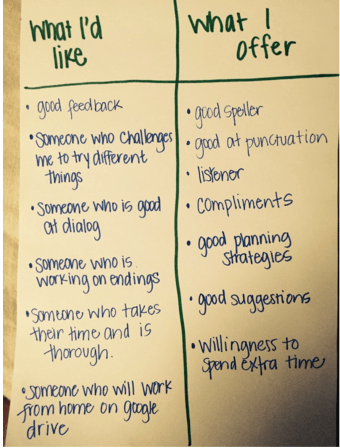 What I'd
like
• good feedback
• Someone who challenges
me to try different
things
• Someone who is good
at dialog
• Someone who is
working on endings
• Someone who takes
their time and is
thorough.
• Someone who will work
from home on google
drive
What I
offer
• good speller
• good at punctuation
• listener
• compliments
• good planning
strategies
• good suggestions
• willingness to
spend extra time